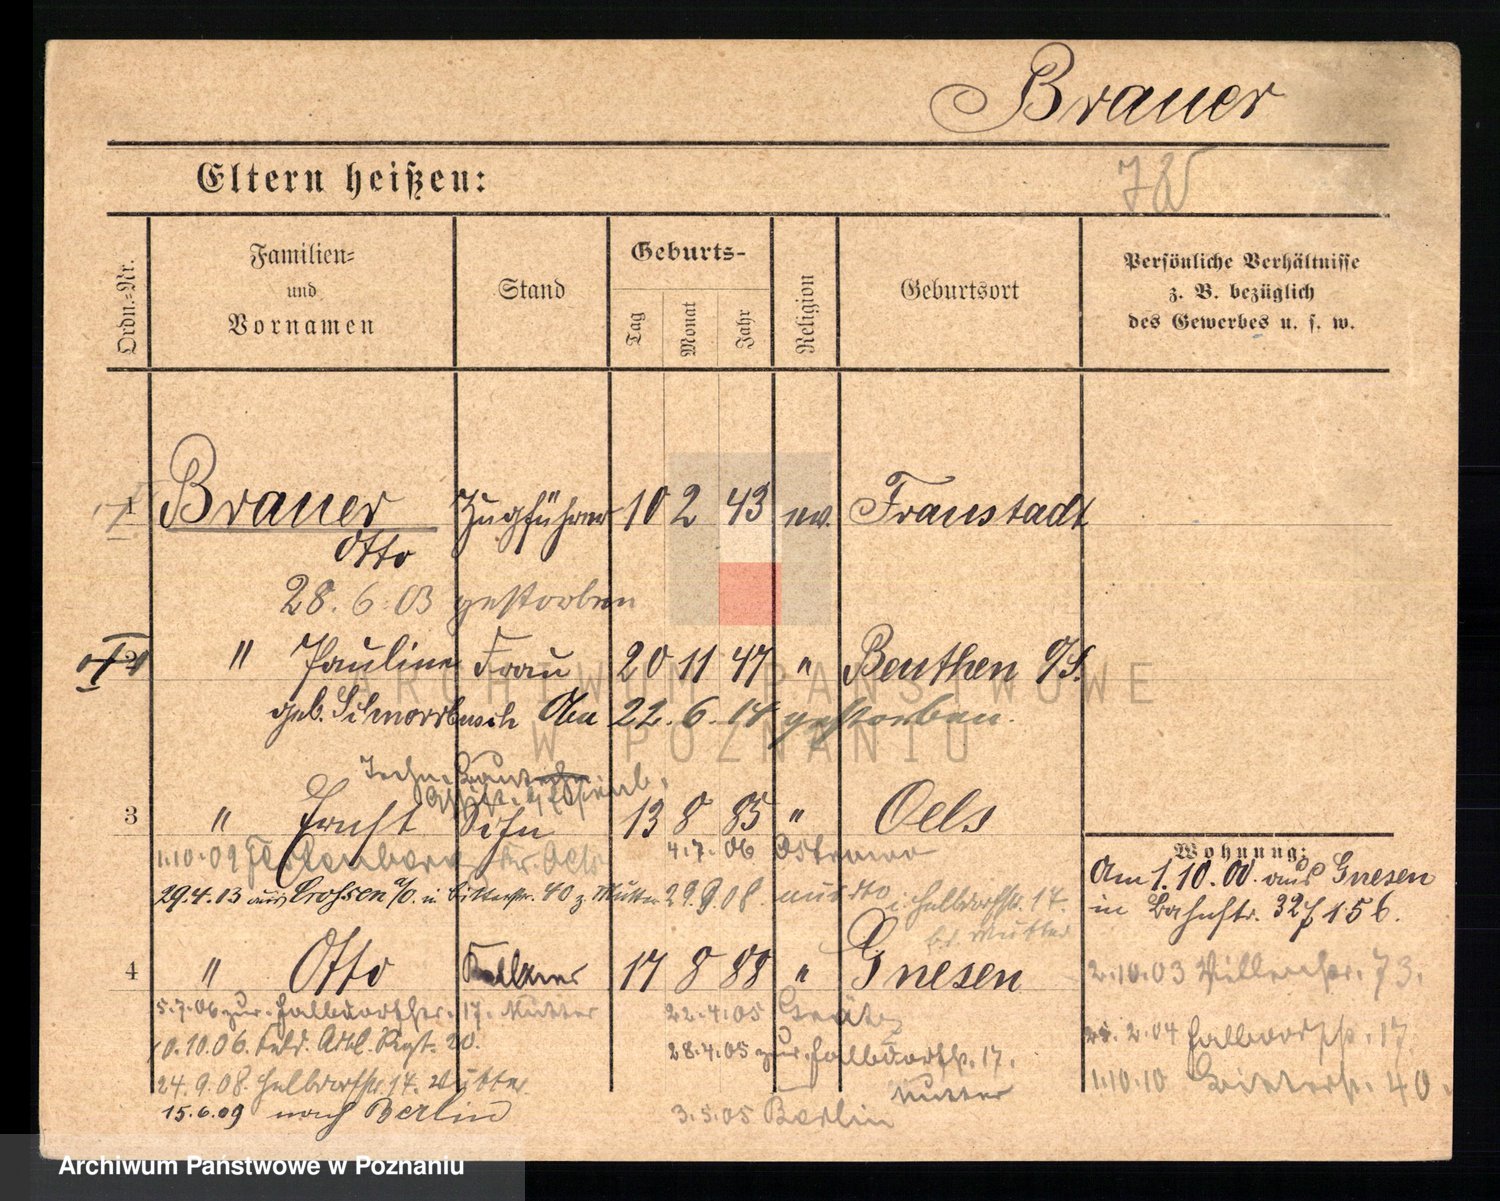 Brauer
Eltern heißen:
Ordn.=Nr.
Familien=
und
Vornamen
Stand
Geburts-
Tag
Monat
Jahr
Religion
Geburtsort
Persönliche Verhältnisse
z. B. bezüglich
des Gewerbes u. s. w.
1 Brauer Zugführer 10 2 43 ev. Fraustadt
Otto
28.6.03 gestorben
2 " Pauline Frau 20 11 47 " Beuthen O/S.
geb. Am 22.6.14 gestorben.
3 " Ernst Sohn 13 8 85 " Oels
1.10.09 Kr. Oels 4.7.06 Ostrowo
29.4.13 aus Crossen a/O. in 40 z. Mutter 29.9.08.
b. d. Mutter
4 " Otto Kellner 17 8 88 " Gnesen
5.7.06 zur. 17. Mutter 22.4.05 Grätz
10.10.06. Feld. Artl. Regt. 20. 28.4.05 zur. 17.
Mutter
24.9.08. 17. Mutter
15.6.09 nach Berlin 3.5.05 Berlin
Wohnung:
Am 1.10.00. aus Gnesen
in Bahnstr. 32
2.10.03 73.
2.04 17
1.10.10 40.
ARCHIWUM PAŃSTWOWE
W POZNANIU
Archiwum Państwowe w Poznaniu